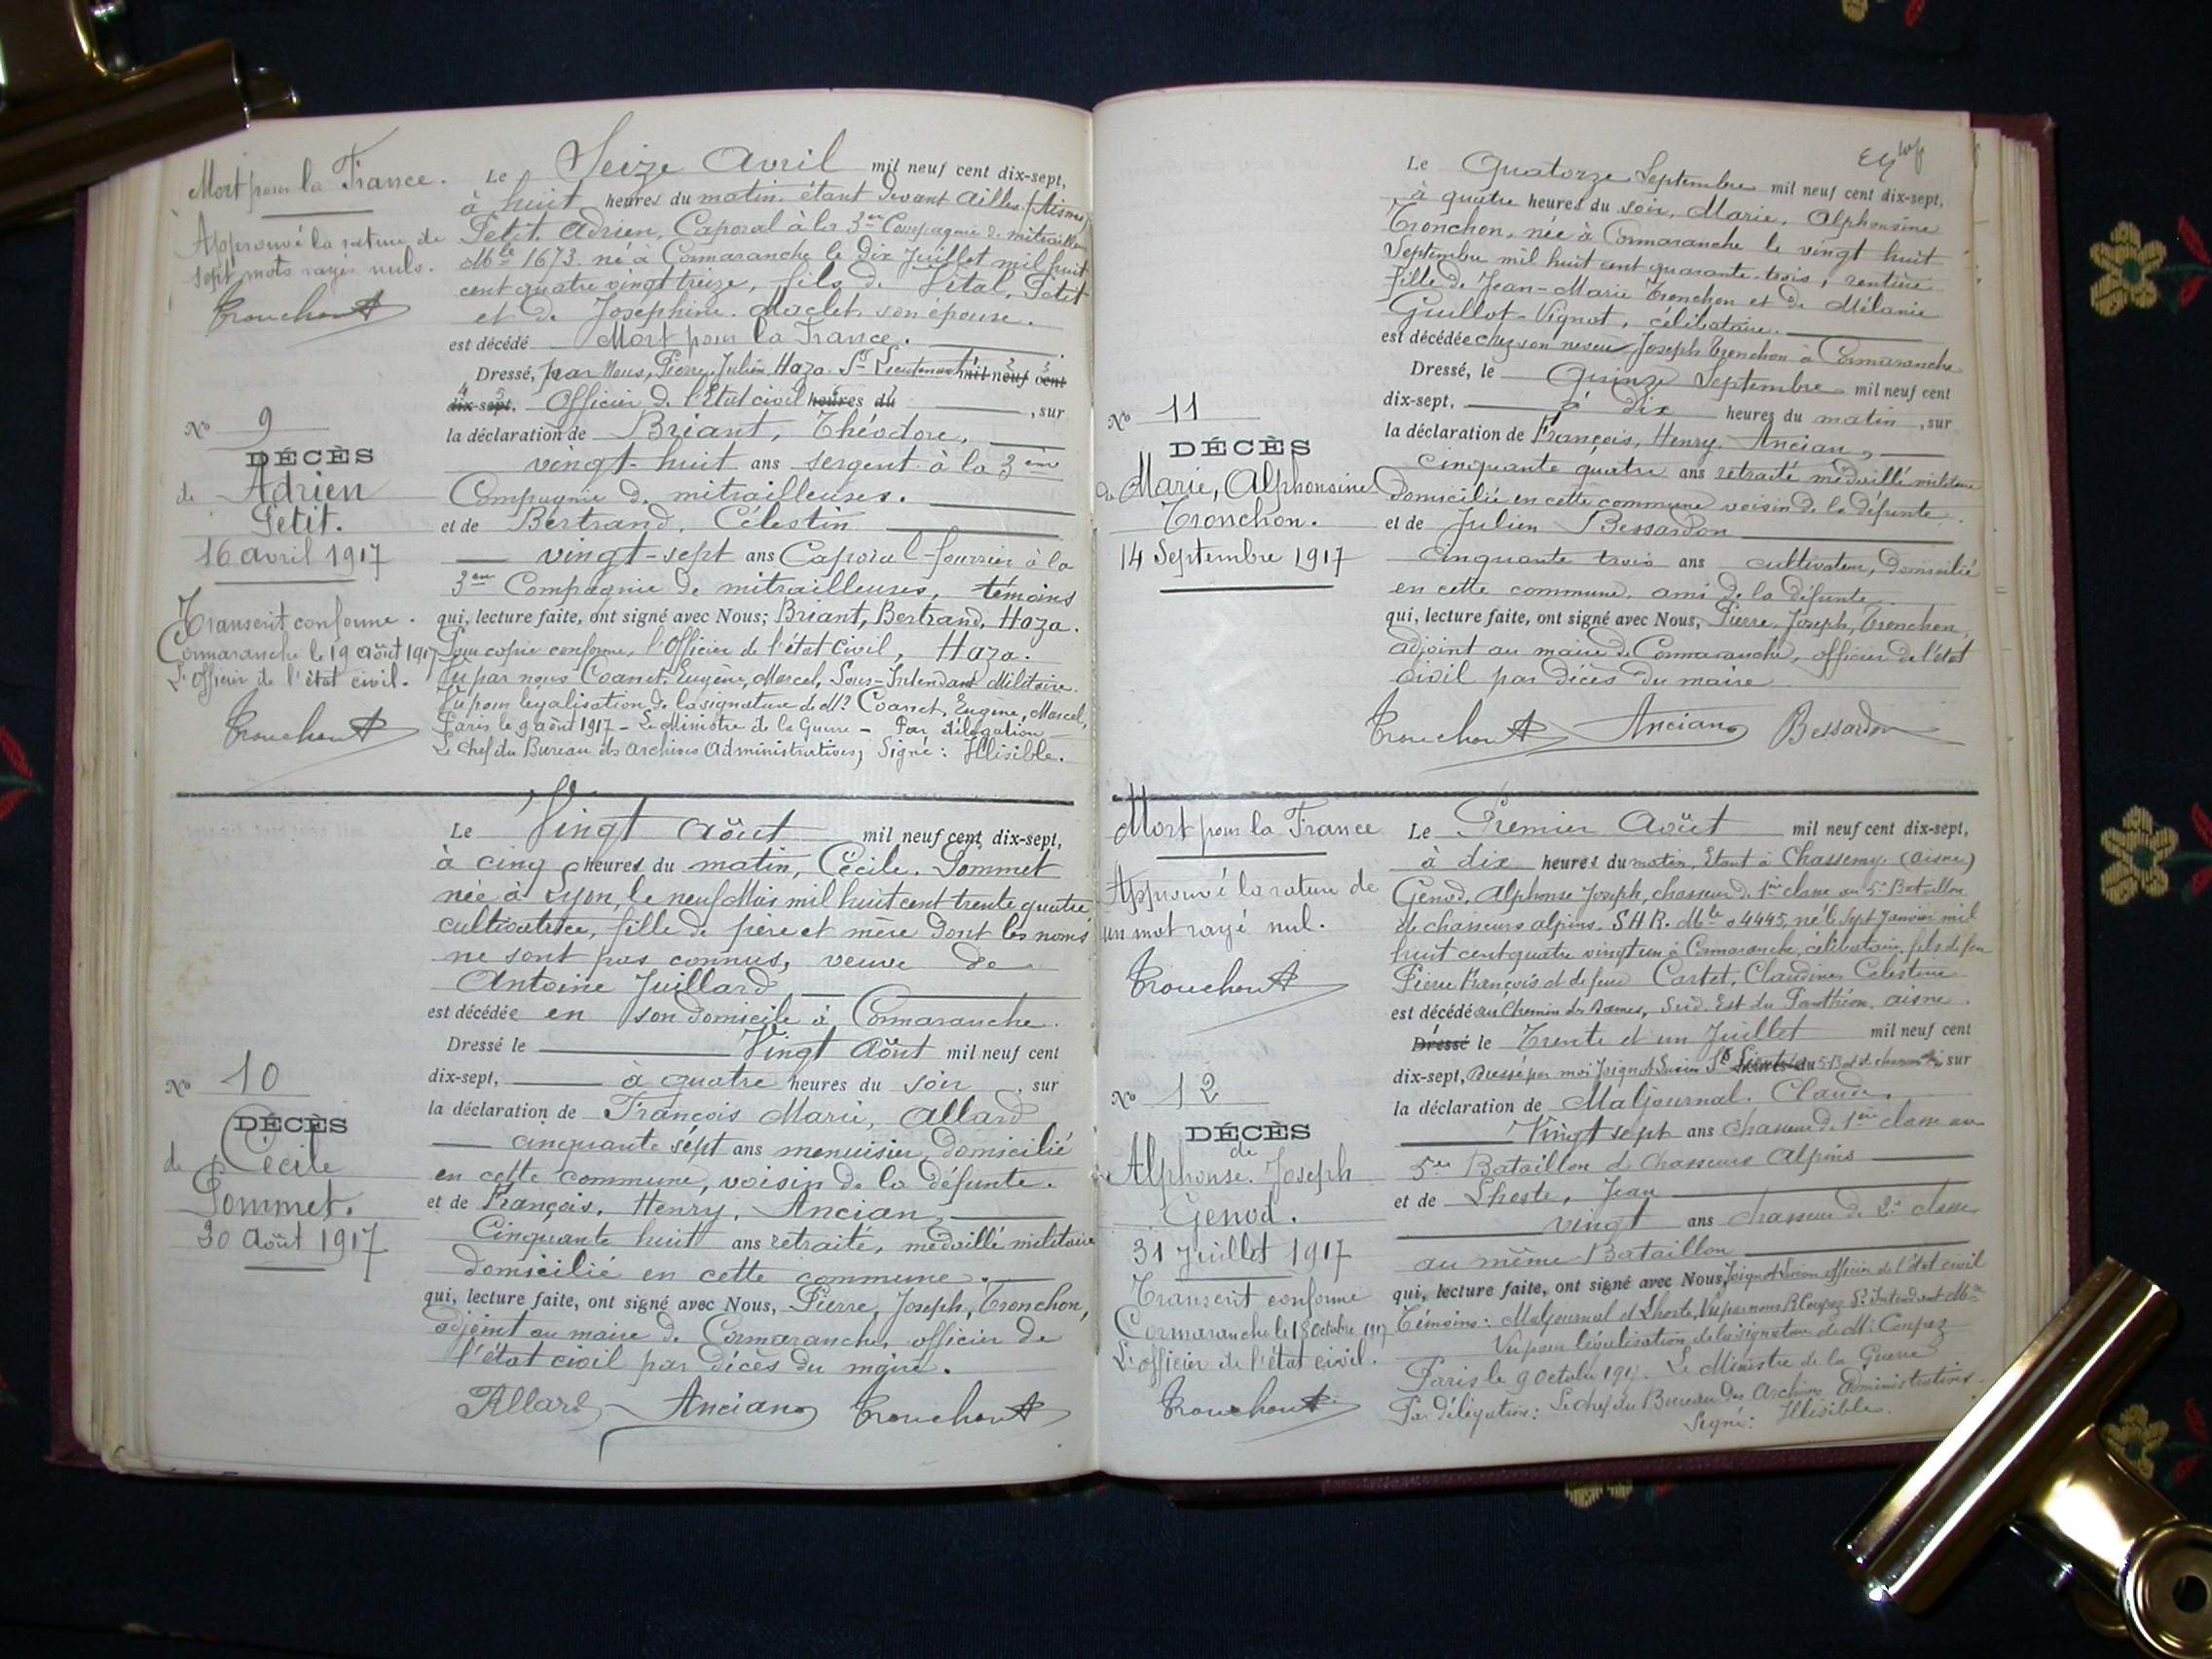 Mort pour la France.
Approuvé la rature de
sept mots rayés nuls.
Tronchon
Nº 9
DÉCÈS
de Adrien
Petit.
16 avril 1917
Transcrit conforme.
Cormaranche le 19 août 1917
L'officier de l'état civil.
Tronchon
Le Seize Avril mil neuf cent dix-sept,
à huit heures du matin, étant devant Ailles (Aisne)
Petit, Adrien, Caporal à la 3me Compagnie de mitrailleuses
Mle 1673. né à Cormaranche le dix Juillet mil huit
cent quatre vingt treize, fils de Vital, Petit
et de Joséphine. Maclet, son épouse.
est décédé Mort pour la France.
Dressé, par Nous, Pierre, Julien Haza. Ss Lieutenant mil neuf cent
dix-sept, Officier de l'Etat civil heures du , sur
la déclaration de Briant, Théodore,
vingt-huit ans sergent à la 3ème
Compagnie de mitrailleuses.
et de Bertrand, Célestin
vingt-sept ans Caporal-fourrier à la
3me Compagnie de mitrailleuses, témoins
qui, lecture faite, ont signé avec Nous; Briant, Bertrand, Haza.
Pour copie conforme, l'Officier de l'état civil, Haza.
Vu par nous Coanet, Eugène, Marcel, Sous-Intendant Militaire.
Vu pour légalisation de la signature de Mr Coanet, Eugène, Marcel,
Paris le 9 août 1917 - Le Ministre de la Guerre - Par délégation
Le Chef du Bureau des Archives Administratives, Signé: Illisible.
Nº 10
DÉCÈS
de Cécile
Pommet.
20 août 1917
Le Vingt Août mil neuf cent dix-sept,
à cinq heures du matin, Cécile. Pommet
née à Lyon, le neuf Mai mil huit cent trente quatre
cultivatrice, fille de père et mère dont les noms
ne sont pas connus, veuve de
Antoine Juillard
est décédée en son domicile à Cormaranche.
Dressé le Vingt Août mil neuf cent
dix-sept, à quatre heures du soir , sur
la déclaration de François Marie, Allard
cinquante sept ans menuisier, domicilié
en cette commune, voisin de la défunte.
et de François, Henry, Ancian,
Cinquante huit ans retraité, médaillé militaire
domicilié en cette commune.
qui, lecture faite, ont signé avec Nous, Pierre, Joseph, Tronchon,
adjoint au maire de Cormaranche, officier de
l'état civil par décès du maire.
Allard Ancian Tronchon
Nº 11
DÉCÈS
de Marie, Alphonsine
Tronchon.
14 Septembre 1917
Le Quatorze Septembre mil neuf cent dix-sept,
à quatre heures du soir, Marie, Alphonsine
Tronchon, née à Cormaranche le vingt huit
Septembre mil huit cent quarante-trois, rentière
fille de Jean-Marie Tronchon et de Mélanie
Guillot-Vignot, célibataire.
est décédée chez son neveu Joseph Tronchon à Cormaranche
Dressé, le Quinze Septembre mil neuf cent
dix-sept, à dix heures du matin , sur
la déclaration de François, Henry. Ancian,
cinquante quatre ans retraité médaillé militaire
domicilié en cette commune voisin de la défunte.
et de Julien Bessardon
cinquante trois ans cultivateur, domicilié
en cette commune. ami de la défunte.
qui, lecture faite, ont signé avec Nous, Pierre, Joseph, Tronchon,
adjoint au maire de Cormaranche, officier de l'état
civil par décès du maire
Tronchon Ancian Bessardon
Mort pour la France
Approuvé la rature de
un mot rayé nul.
Tronchon
Nº 12
DÉCÈS
de
Alphonse. Joseph
Genod.
31 Juillet 1917
Transcrit conforme
Cormaranche le 18 octobre 1917
L'officier de l'état civil.
Tronchon
Le Premier Août mil neuf cent dix-sept,
à dix heures du matin, Etant à Chassemy (Aisne)
Genod, Alphonse Joseph, chasseur de 1re classe au 5e Bataillon
de chasseurs alpins. S.H.R. Mle 04445, né le Sept Janvier mil
huit cent quatre vingt un à Cormaranche, célibataire, fils de feu
Pierre François et de feue Cartet, Claudine, Célestine
est décédé au Chemin des Dames, Sud. Est du Panthéon. aisne.
Dressé le Trente et un Juillet mil neuf cent
dix-sept, Dressé par moi Joignot Lucien Ss heures du 5e Bat. de chasseurs sur
la déclaration de Maljournal. Claude,
Vingt sept ans chasseur de 1ère classe au
5me Bataillon de Chasseurs Alpins
et de Lhoste, Jean
vingt ans chasseur de 2e classe
au même Bataillon
qui, lecture faite, ont signé avec Nous, Joignot Lucien officier de l'état civil
Témoins: Maljournal et Lhoste, Vu par nous R. Coupez Ss Intendant Mre
Vu pour légalisation de la signature de Mr Coupez
Paris le 9 octobre 1917. Le Ministre de la Guerre
Par délégation: Le chef du Bureau des Archives Administratives
Signé: Illisible.